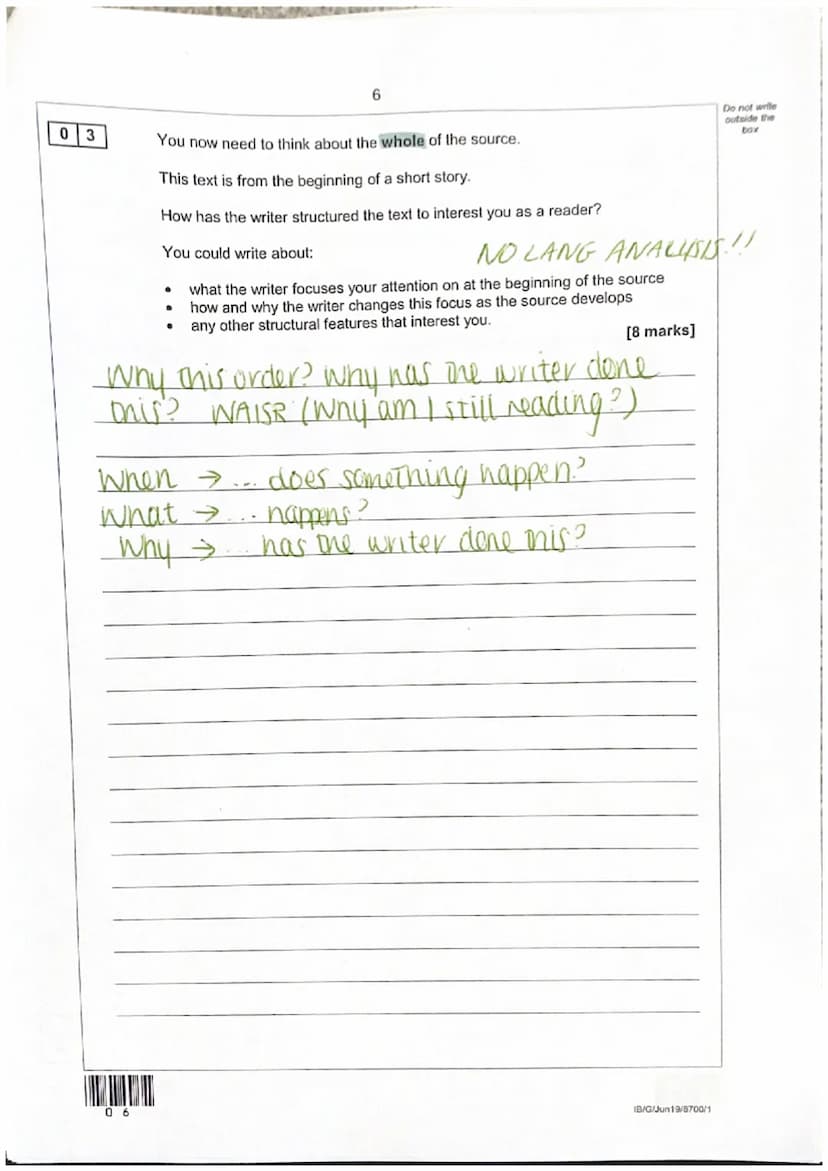 6
Do not write
outside the
box
0 3
You now need to think about the whole of the source.
This text is from the beginning of a short story.
How has the writer structured the text to interest you as a reader?
You could write about:
NO LANG ANALYSIS!!
• what the writer focuses your attention on at the beginning of the source
• how and why the writer changes this focus as the source develops
• any other structural features that interest you.
[8 marks]
Why this order? Why has the writer done
this? WAISR (Why am I still reading?)
When → ... does something happen?
What → ... happens?
Why → ... has the writer done this?
0 6
IB/G/Jun19/8700/1